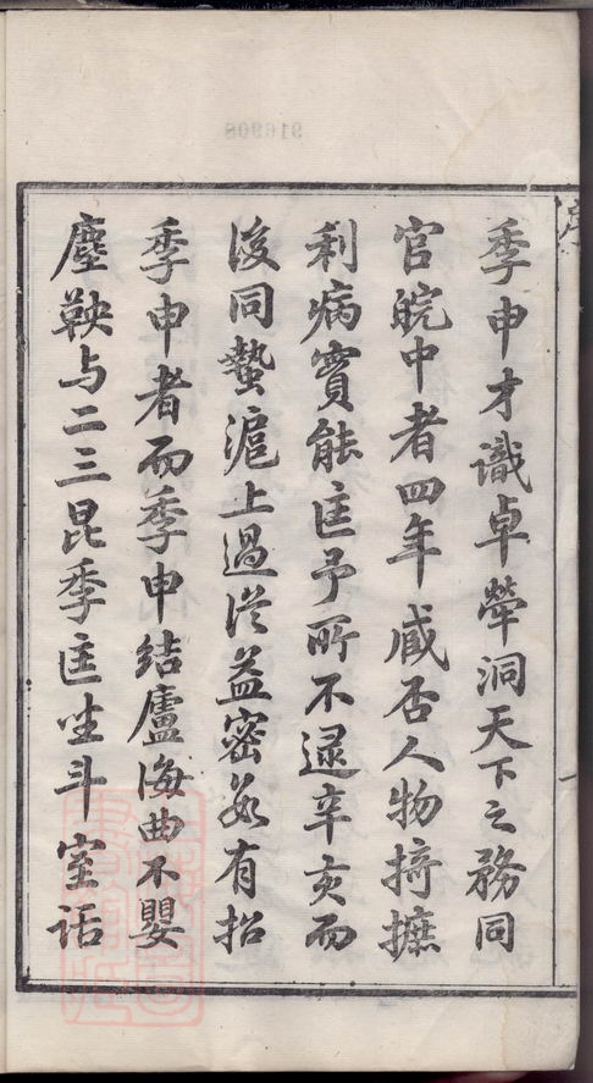 季申才識卓犖洞天下之務同
官皖中者四年臧否人物掎摭
利病實能匡予所不逮辛亥而
後同蟄滬上過從益密幾有招
季申者而季申結廬海曲不嬰
塵鞅与二三昆季匡坐斗室話
序
一